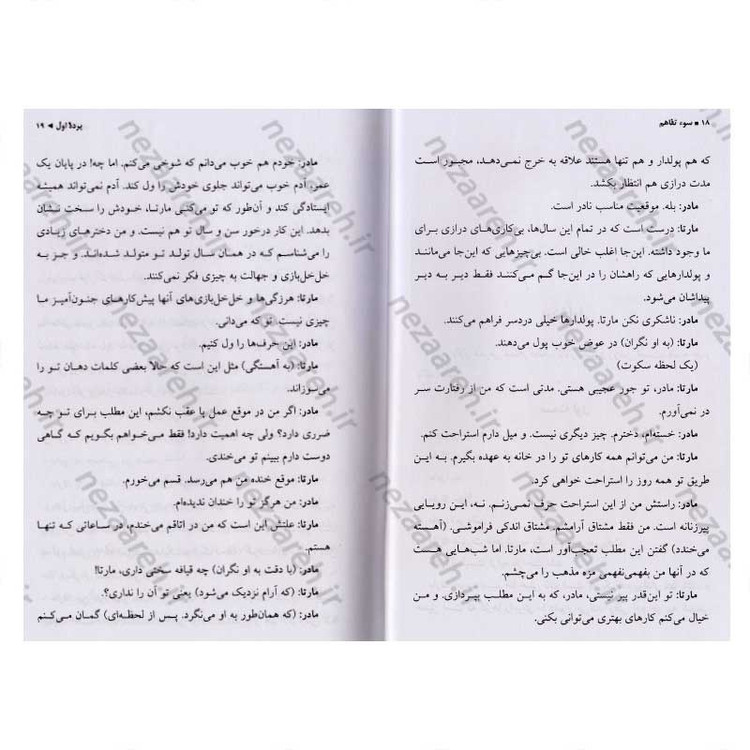 ۱۸ ■ سوء تفاهم
که هم پولدار و هم تنها هستند علاقه به خرج نمی‌دهد، مجبور است
مدت درازی هم انتظار بکشد.
مادر: بله. موقعیت مناسب نادر است.
مارتا: درست است که در تمام این سال‌ها، بی‌کاری‌های درازی برای
ما وجود داشته. این‌جا اغلب خالی است. بی‌چیزهایی که این‌جا می‌مانند
و پولدارهایی که راهشان را در این‌جا گم می‌کنند فقط دیر به دیر
پیداشان می‌شود.
مادر: ناشکری نکن مارتا. پولدارها خیلی دردسر فراهم می‌کنند.
مارتا: (به او نگران) در عوض خوب پول می‌دهند.
(یک لحظه سکوت)
مارتا: مادر، تو جور عجیبی هستی. مدتی است که من از رفتارت سر
در نمی‌آورم.
مادر: خسته‌ام، دخترم. چیز دیگری نیست. و میل دارم استراحت کنم.
مارتا: من می‌توانم همه کارهای تو را در خانه به عهده بگیرم. به این
طریق تو همه روز را استراحت خواهی کرد.
مادر: راستش من از این استراحت حرف نمی‌زنم. نه، این رویایی
پیرزنانه است. من فقط مشتاق آرامشم. مشتاق اندکی فراموشی. (آهسته
می‌خندد) گفتن این مطلب تعجب‌آور است، مارتا. اما شب‌هایی هست
که در آنها من بفهمی‌نفهمی مزه مذهب را می‌چشم.
مارتا: تو این‌قدر پیر نیستی، مادر، که به این مطلب بپردازی. و من
خیال می‌کنم کارهای بهتری می‌توانی بکنی.
پردهٔ اول ◄ ۱۹
مادر: خودم هم خوب می‌دانم که شوخی می‌کنم. اما چه! در پایان یک
عمر، آدم خوب می‌تواند جلوی خودش را ول کند. آدم نمی‌تواند همیشه
ایستادگی کند و آن‌طور که تو می‌کنی مارتا، خودش را سخت نشان
بدهد. این کار درخور سن و سال تو هم نیست. و من دخترهای زیادی
را می‌شناسم که در همان سال تولد تو متولد شده‌اند. و جز به
خل‌خل‌بازی و جهالت به چیزی فکر نمی‌کنند.
مارتا: هرزگی‌ها و خل‌خل‌بازی‌های آنها پیش‌کارهای جنون‌آمیز ما
چیزی نیست. تو که می‌دانی.
مادر: این حرف‌ها را ول کنیم.
مارتا: (به آهستگی) مثل این است که حالا بعضی کلمات دهان تو را
می‌سوزاند.
مادر: اگر من در موقع عمل پا عقب نکشم، این مطلب برای تو چه
ضرری دارد؟ ولی چه اهمیت دارد! فقط می‌خواهم بگویم که گاهی
دوست دارم ببینم تو می‌خندی.
مارتا: موقع خنده من هم می‌رسد. قسم می‌خورم.
مادر: من هرگز تو را خندان ندیده‌ام.
مارتا: علتش این است که من در اتاقم می‌خندم، در ساعاتی که تنها
هستم.
مادر: (با دقت به او نگران) چه قیافه سختی داری، مارتا!
مارتا: (که آرام نزدیک می‌شود) یعنی تو آن را نداری؟.
مادر: (که همان‌طور به او می‌نگرد. پس از لحظه‌ای) گمان می‌کنم
nezaareh.ir
nezaareh.ir
nezaareh.ir
nezaareh.ir
nezaareh.ir
nezaareh.ir